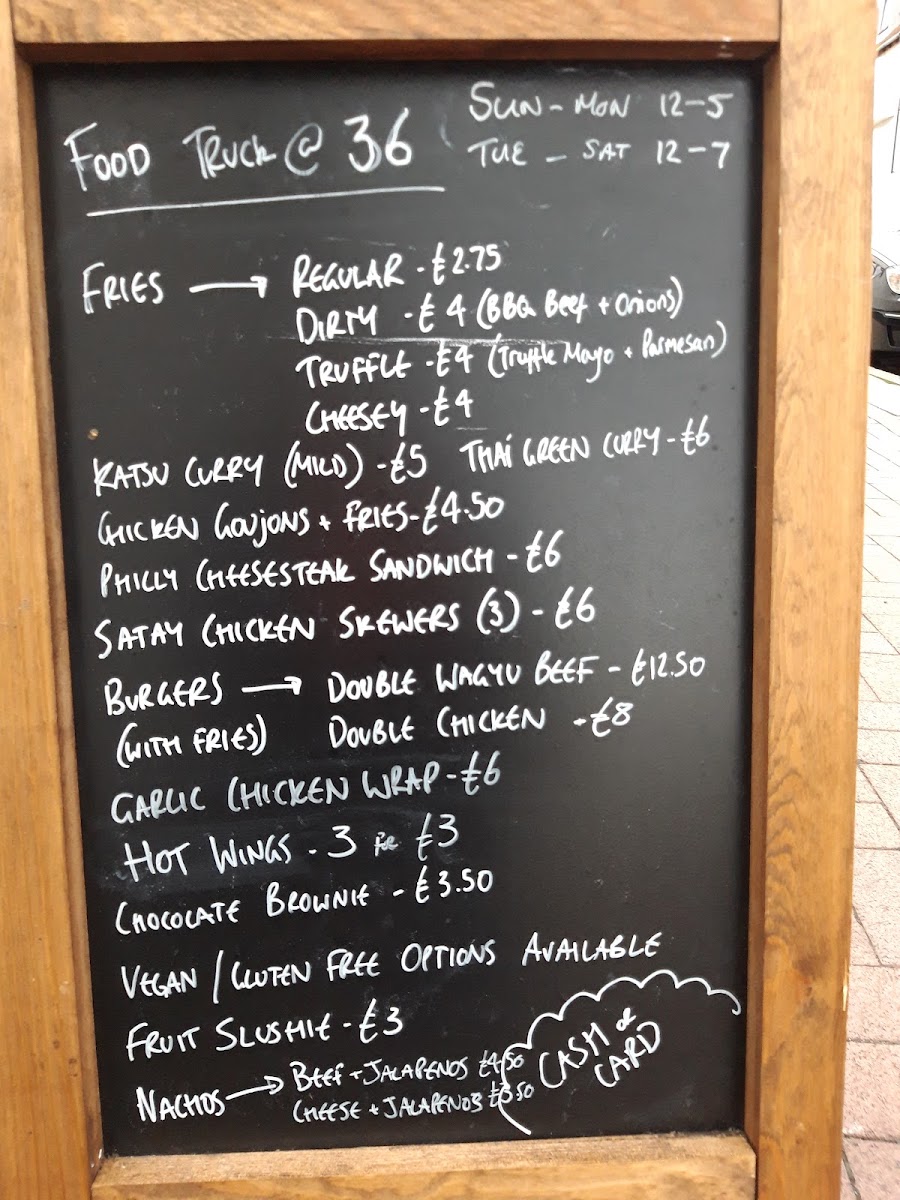 FOOD TRUCK @ 36
SUN - MON 12-5
TUE - SAT 12-7
FRIES → REGULAR - £2.75
DIRTY - £4 (BBQ Beef + Onions)
TRUFFLE - £4 (Truffle Mayo + Parmesan)
CHEESEY - £4
KATSU CURRY (MILD) - £5 THAI GREEN CURRY - £6
CHICKEN GOUJONS + FRIES - £4.50
PHILLY CHEESESTEAK SANDWICH - £6
SATAY CHICKEN SKEWERS (3) - £6
BURGERS → DOUBLE WAGYU BEEF - £12.50
(WITH FRIES) DOUBLE CHICKEN - £8
GARLIC CHICKEN WRAP - £6
HOT WINGS - 3 for £3
CHOCOLATE BROWNIE - £3.50
VEGAN / GLUTEN FREE OPTIONS AVAILABLE
FRUIT SLUSHIE - £3
NACHOS → BEEF + JALAPENOS £4.50
CHEESE + JALAPENOS £3.50
CASH or
CARD